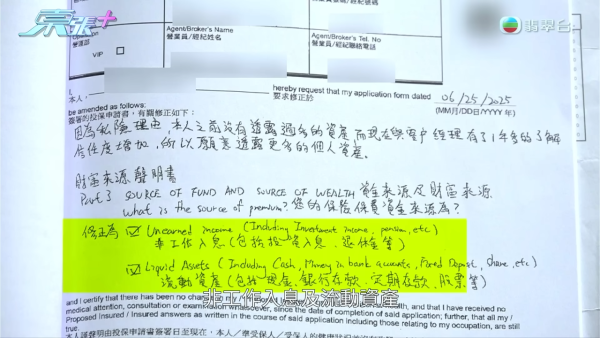 東張+
翡翠台
Agent/Broker's Name
營業員/經紀姓名
Agent/Broker's Tel. No
營業員/經紀聯絡電話
營運部
VIP
本人,
hereby request that my application form dated 06/25/2025
要求修正於
(MM月/DD日/YYYY 年)
be amended as follows:
簽署的投保申請書,有關修正如下:
因為私隱理由,本人之前沒有透露過多的資產而現在與客戶經理有了1年多的了解
信任度增加,所以願意透露更多的個人資產。
財富來源聲明書
Part 3 SOURCE OF FUND AND SOURCE OF WEALTH 資金來源及財富來源
What is the source of premium? 您的保險保費資金來源為?
修正為 ☑ Unearned income (Including Investment income, pension, etc)
非工作入息(包括投資入息、退休金等)
☑ Liquid Assets (Including Cash, Money in bank accounts, Fixed Deposit, share, etc)
流動資產(包括現金、銀行存款、定期存款、股票等)
and I certify that there has been no chan
health, and that I have received no
medical attention, consultation or examination whatsoever, since the date of completion of said application; further, that all my /
Proposed Insured / Insured answers as written in the course of said application including those relating to my occupation, are still
true.
非工作入息及流動資產